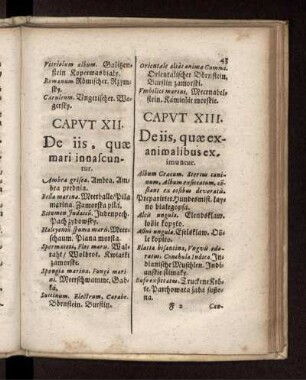 Vitriolum album. Galitzen-
stein Koperwas biały.
Romanum. Römischer. Rzym-
sky.
Caruleum. Vngerischer. We-
gersky.
CAPVT XII.
De iis, quæ
mari innascun-
tur.
Ambra grisea. Ambra. Am-
bra prednia.
Bila marina. Meerballe/Pila
marina. Zamorska piła.
Bitumen Judaicū. Judenpech.
Pach zydowsky.
Halcyonis spuma maris. Meer-
schaum. Piana morska.
Spermaceti, Flos maris. Wal-
raht/ Wolkrot. Kwiatki
zamorske.
Spongia marina. Fungi mari-
ni. Meerschwamme. Gab-
ka.
Succinum. Electrum. Carabe.
Börnstein. Bursztin.
43
Orientale alias anima Gummi.
Orientalischer Börnstein.
Burstin zamorski.
Vmbilici marini. Meernabel-
stein. Kamiehle morskie.
CAPVT XIII.
De iis, quæ ex-
animalibus ex-
imuntur.
Album Græcum. Stercus cani-
num, Album
stans ex ossibus devoratis.
Præparirter Hundesmist.
no białegopsa.
Alcis ungula. Elendsklaw.
kopyte.
Asini ungula. Eselsklaw. O-
sle kopito.
Blatta bizantina, Vnguis odo-
ratus. Conchula Indica. In-
dianische Muschlen. Ind-
ianskie slimaky.
Truckene Krö-
te. Parchowata zaba susse-
na.
F 2
Cor-